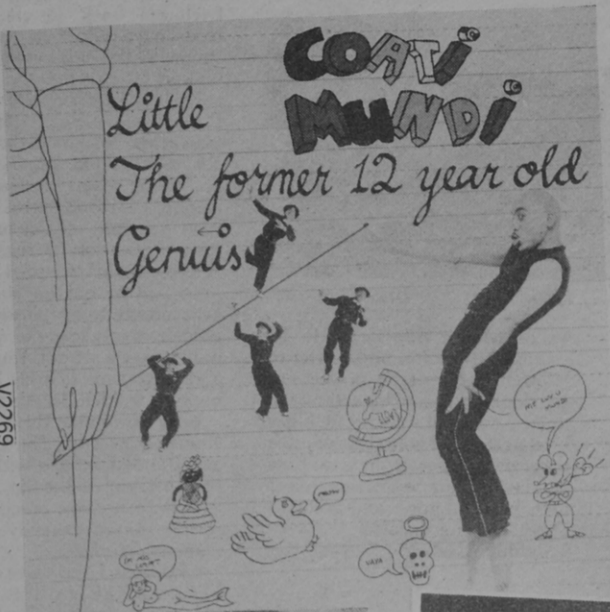 COATI
MUNDI
Little
The former 12 year old
Genius
V2269